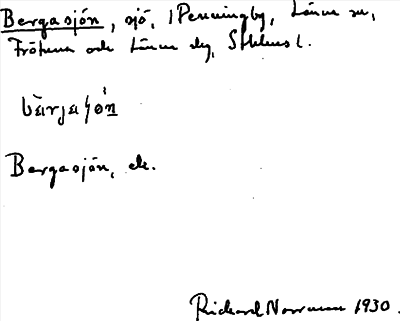 Bergasjön, sjö, i Penningby, Länna sn,
Frötuna och Länna skg, Sthlms l.
bärjaʃón
Bergasjön, ek.
Rickard Norrman 1930.